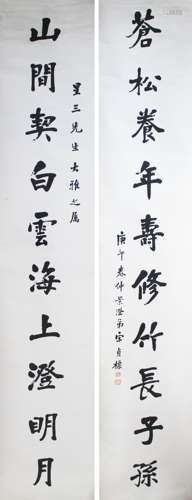 蒼松養年壽修竹長子孫
庚午春仲景澄弟宗貞
山間契白雲海上澄明月
星三先生大雅之屬